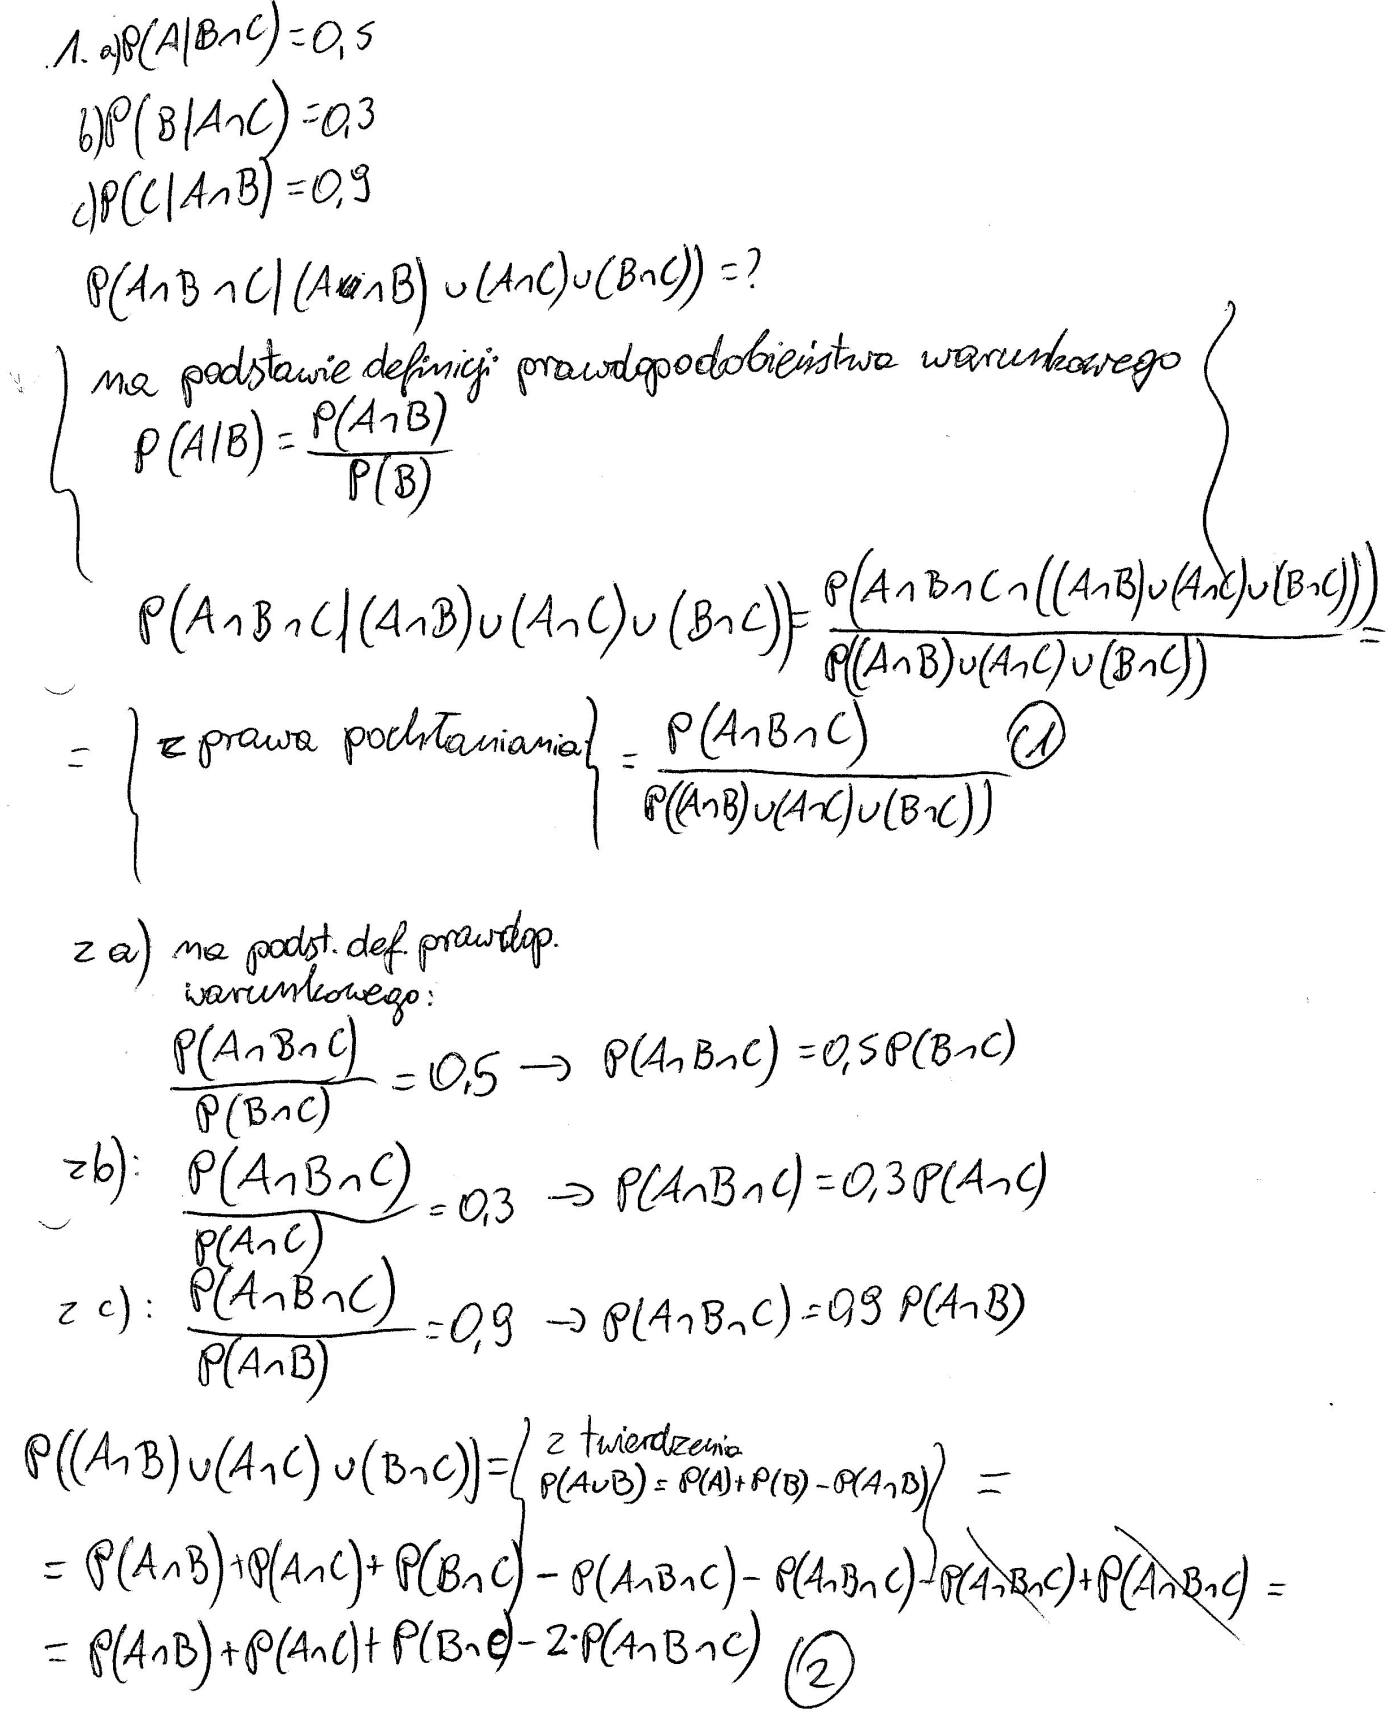 1. a) P(A|B∩C)=0,5
b) P(B|A∩C)=0,3
c) P(C|A∩B)=0,9
P(A∩B∩C|(A∩B)∪(A∩C)∪(B∩C))=?
na podstawie definicji prawdopodobieństwa warunkowego
P(A|B)=P(A∩B)/P(B)
P(A∩B∩C|(A∩B)∪(A∩C)∪(B∩C))=P(A∩B∩C∩((A∩B)∪(A∩C)∪(B∩C)))/P((A∩B)∪(A∩C)∪(B∩C))=
= { z prawa pochłaniania } = P(A∩B∩C)/P((A∩B)∪(A∩C)∪(B∩C)) ①
z a) na podst. def. prawdop.
warunkowego:
P(A∩B∩C)/P(B∩C)=0,5 → P(A∩B∩C)=0,5P(B∩C)
z b): P(A∩B∩C)/P(A∩C)=0,3 → P(A∩B∩C)=0,3P(A∩C)
z c): P(A∩B∩C)/P(A∩B)=0,9 → P(A∩B∩C)=0,9 P(A∩B)
P((A∩B)∪(A∩C)∪(B∩C))={ z twierdzenia
P(A∪B)=P(A)+P(B)-P(A∩B) } =
= P(A∩B)+P(A∩C)+P(B∩C)-P(A∩B∩C)-P(A∩B∩C)-P(A∩B∩C)+P(A∩B∩C)=
= P(A∩B)+P(A∩C)+P(B∩C)-2·P(A∩B∩C) ②